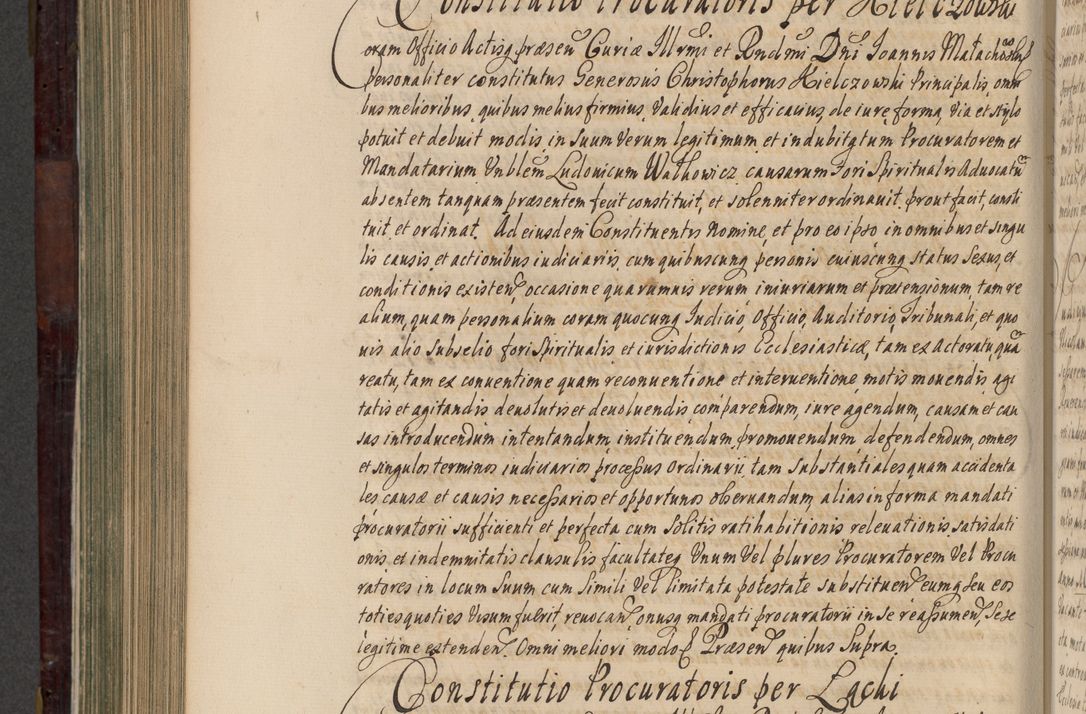 Constitutio Procuratoris per Kielczowski
Coram Officio Actisq præsen Curiæ Illrmi et Rndmi Dni Joannis Małachowski
personaliter constitutus Generosus Christophorus Kielczowski Principalis, omni
bus melioribus, quibus melius firmius, Validius et efficacius, de iure, forma, via et stylo
potuit et debuit modis, in Suum Verum legitimum et indubitatum Procuratorem et
Mandatarium Vnblem Ludovicum Wałkowicz causarum Fori Spiritualis Advocatu
absentem tanquam præsentem fecit constituit, et solenniter ordinauit, prout facit, consti
tuit et ordinat. Ad eiusdem Constituentis Nomine, et pro eo ipso in omnibus et singu
lis causis et actionibus iudiciariis, cum quibuscunq personis cuiuscunq status Sexus, et
conditionis existen, occasione quarumuis rerum iniuriarum et prætensionum, tam re
alium, quam personalium coram quocunq Judicio, Officio, Auditorio, Tribunali, et quo
uis alio Subselio fori Spiritualis et iurisdictionis Ecclesiasticæ, tam ex Actoratu, qua
reatu, tam ex conuentione quam reconuentione et interuentione, motis mouendis, agi
tatis et agitandis deuolutis et deuoluendis comparendum, iure agendum, causam et cau
sas introducendum intentandum, instituendum, promouendum defendendum, omnes
et singulos terminos iudiciarios processus Ordinarii tam Substantiales quam accidenta
les causæ et causis necessarios et opportunos obseruandum, alias in forma mandati
procuratorii sufficienti et perfecta cum Solitis ratihabitionis releuationis satisdati
onis et indemnitatis clausulis facultateq Vnum Vel plures Procuratorem Vel Procu
ratores in locum Suum cum Simili Vel limitata potestate substituen eumq seu eos
toties quoties Visum fuerit, reuocan onusq mandati procuratorii in Se reassumen, Sese
legitime extenden. Omni meliori modo Præsen quibus Supra.
Constitutio Procuratoris per Lachi